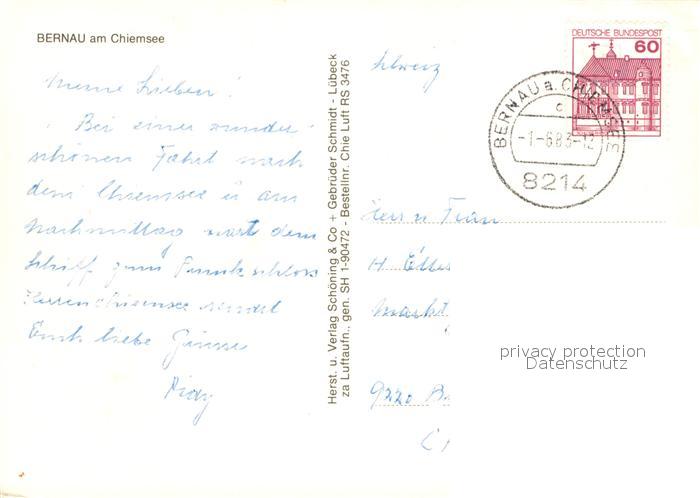 BERNAU am Chiemsee
Meine Lieben!
Bei einer wunder
schönen Fahrt nach
dem Chiemsee u am
Nachmittag mit dem
Schiff zum Prunkschloss
Herrenchiemsee sendet
Euch liebe Grüsse
Herst. u. Verlag Schöning & Co + Gebrüder Schmidt - Lübeck
za Luftaufn., gen. SH 1-90472 - Bestellnr. Chie Luft RS 3476
Schweiz
DEUTSCHE BUNDESPOST
60
BERNAU a. CHIEMSEE
c
-1-6.83-12
8214
Herr u Frau
H
Markt
9220 B
privacy protection
Datenschutz